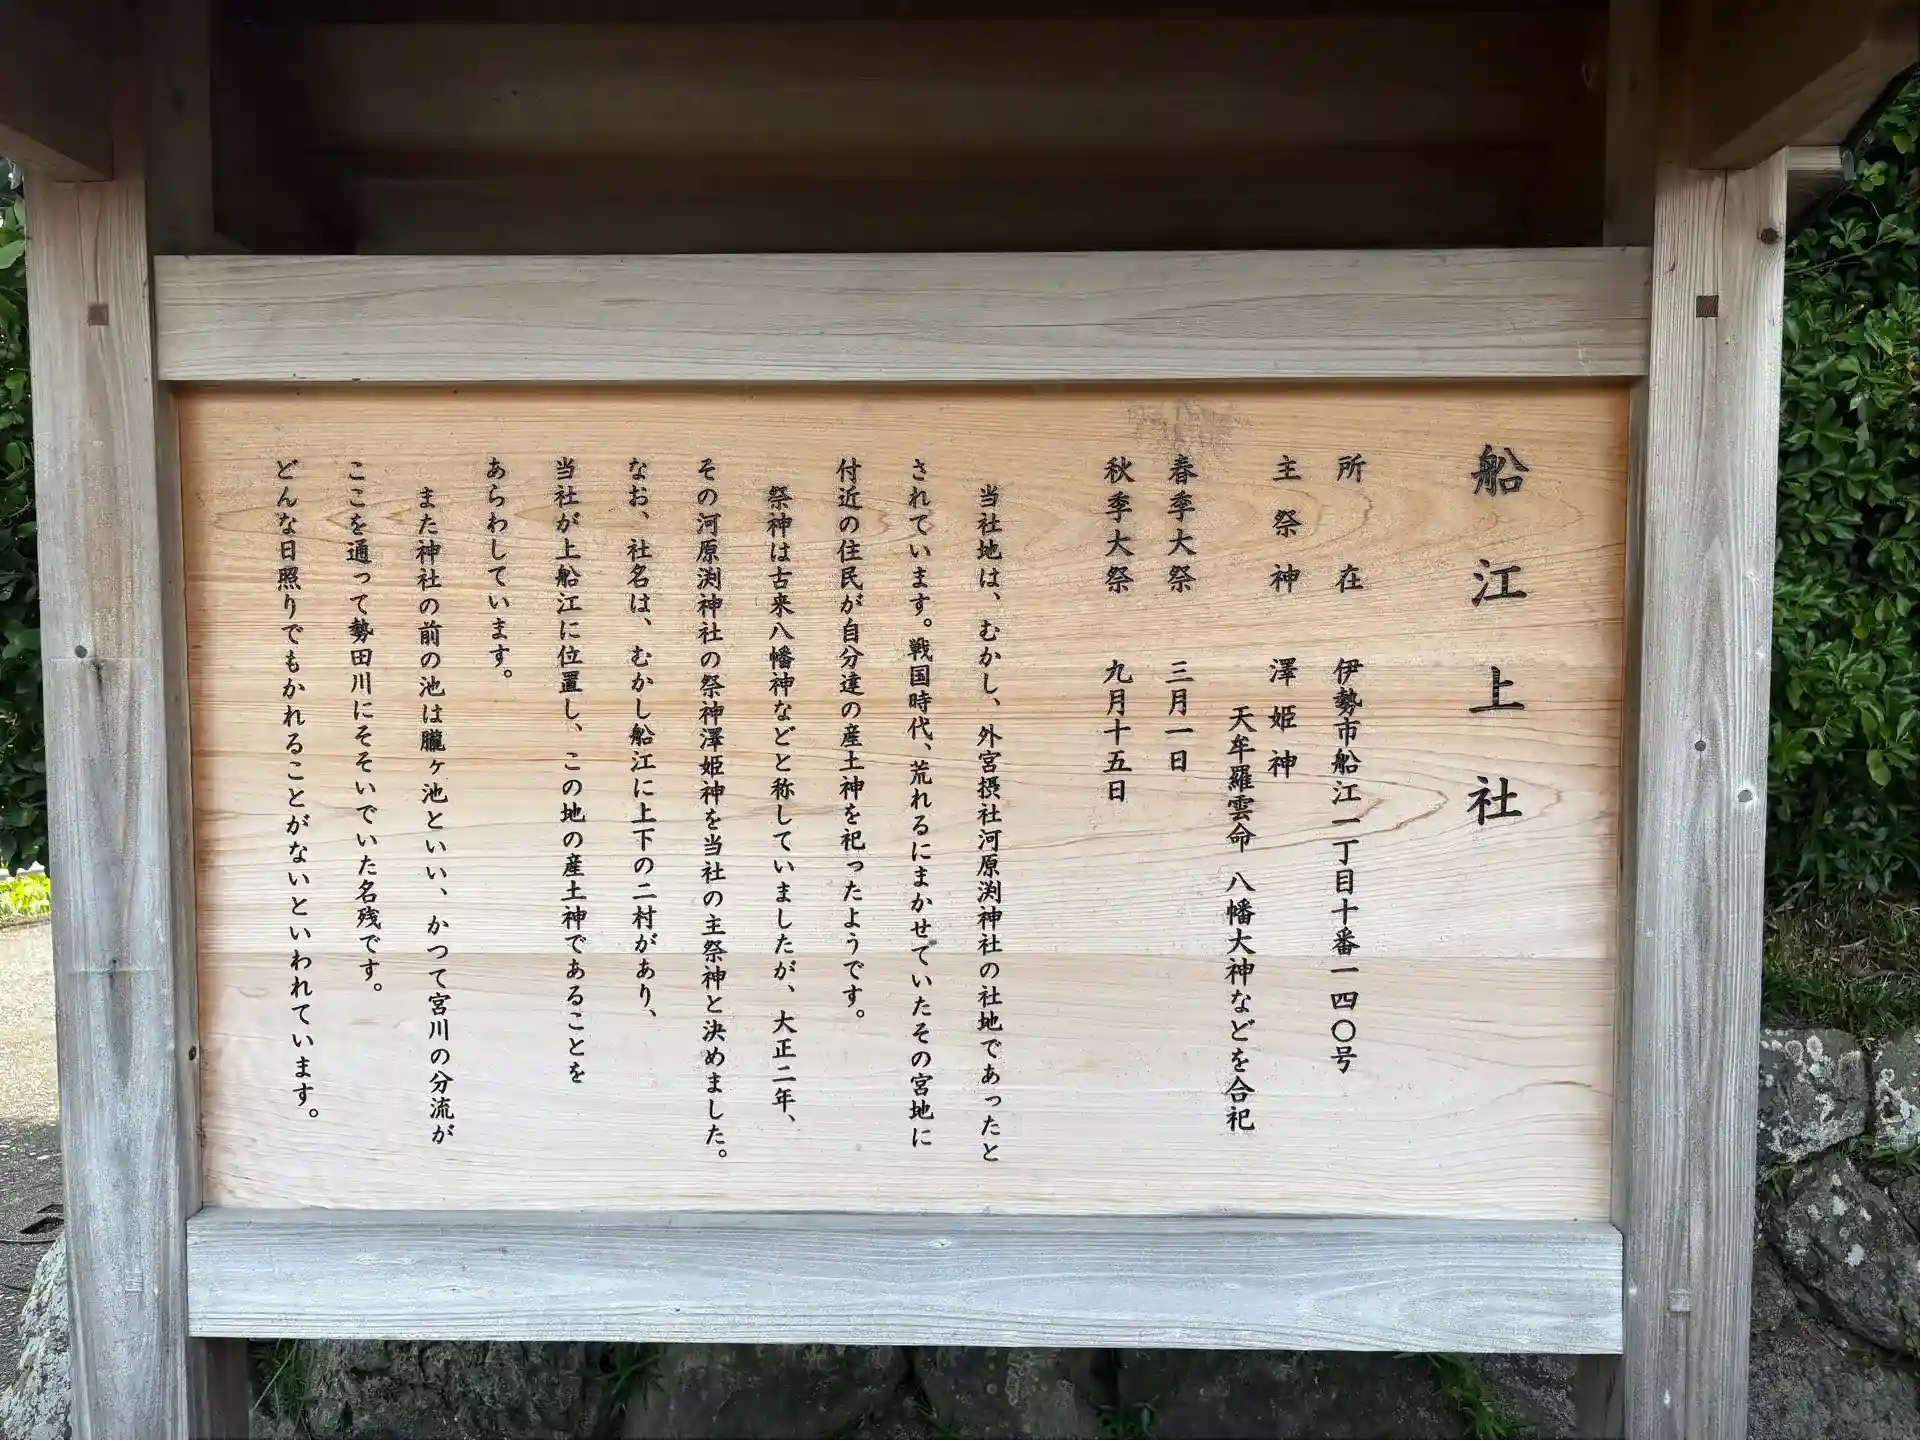 船江上社
所在　伊勢市船江一丁目十番一四〇号
主祭神　澤姫神
天牟羅雲命　八幡大神などを合祀
春季大祭　三月一日
秋季大祭　九月十五日
当社地は、むかし、外宮摂社河原渕神社の社地であったと
されています。戦国時代、荒れるにまかせていたその宮地に
付近の住民が自分達の産土神を祀ったようです。
祭神は古来八幡神などと称していましたが、大正二年、
その河原渕神社の祭神澤姫神を当社の主祭神と決めました。
なお、社名は、むかし船江に上下の二村があり、
当社が上船江に位置し、この地の産土神であることを
あらわしています。
また神社の前の池は朧ヶ池といい、かつて宮川の分流が
ここを通って勢田川にそそいでいた名残です。
どんな日照りでもかれることがないといわれています。